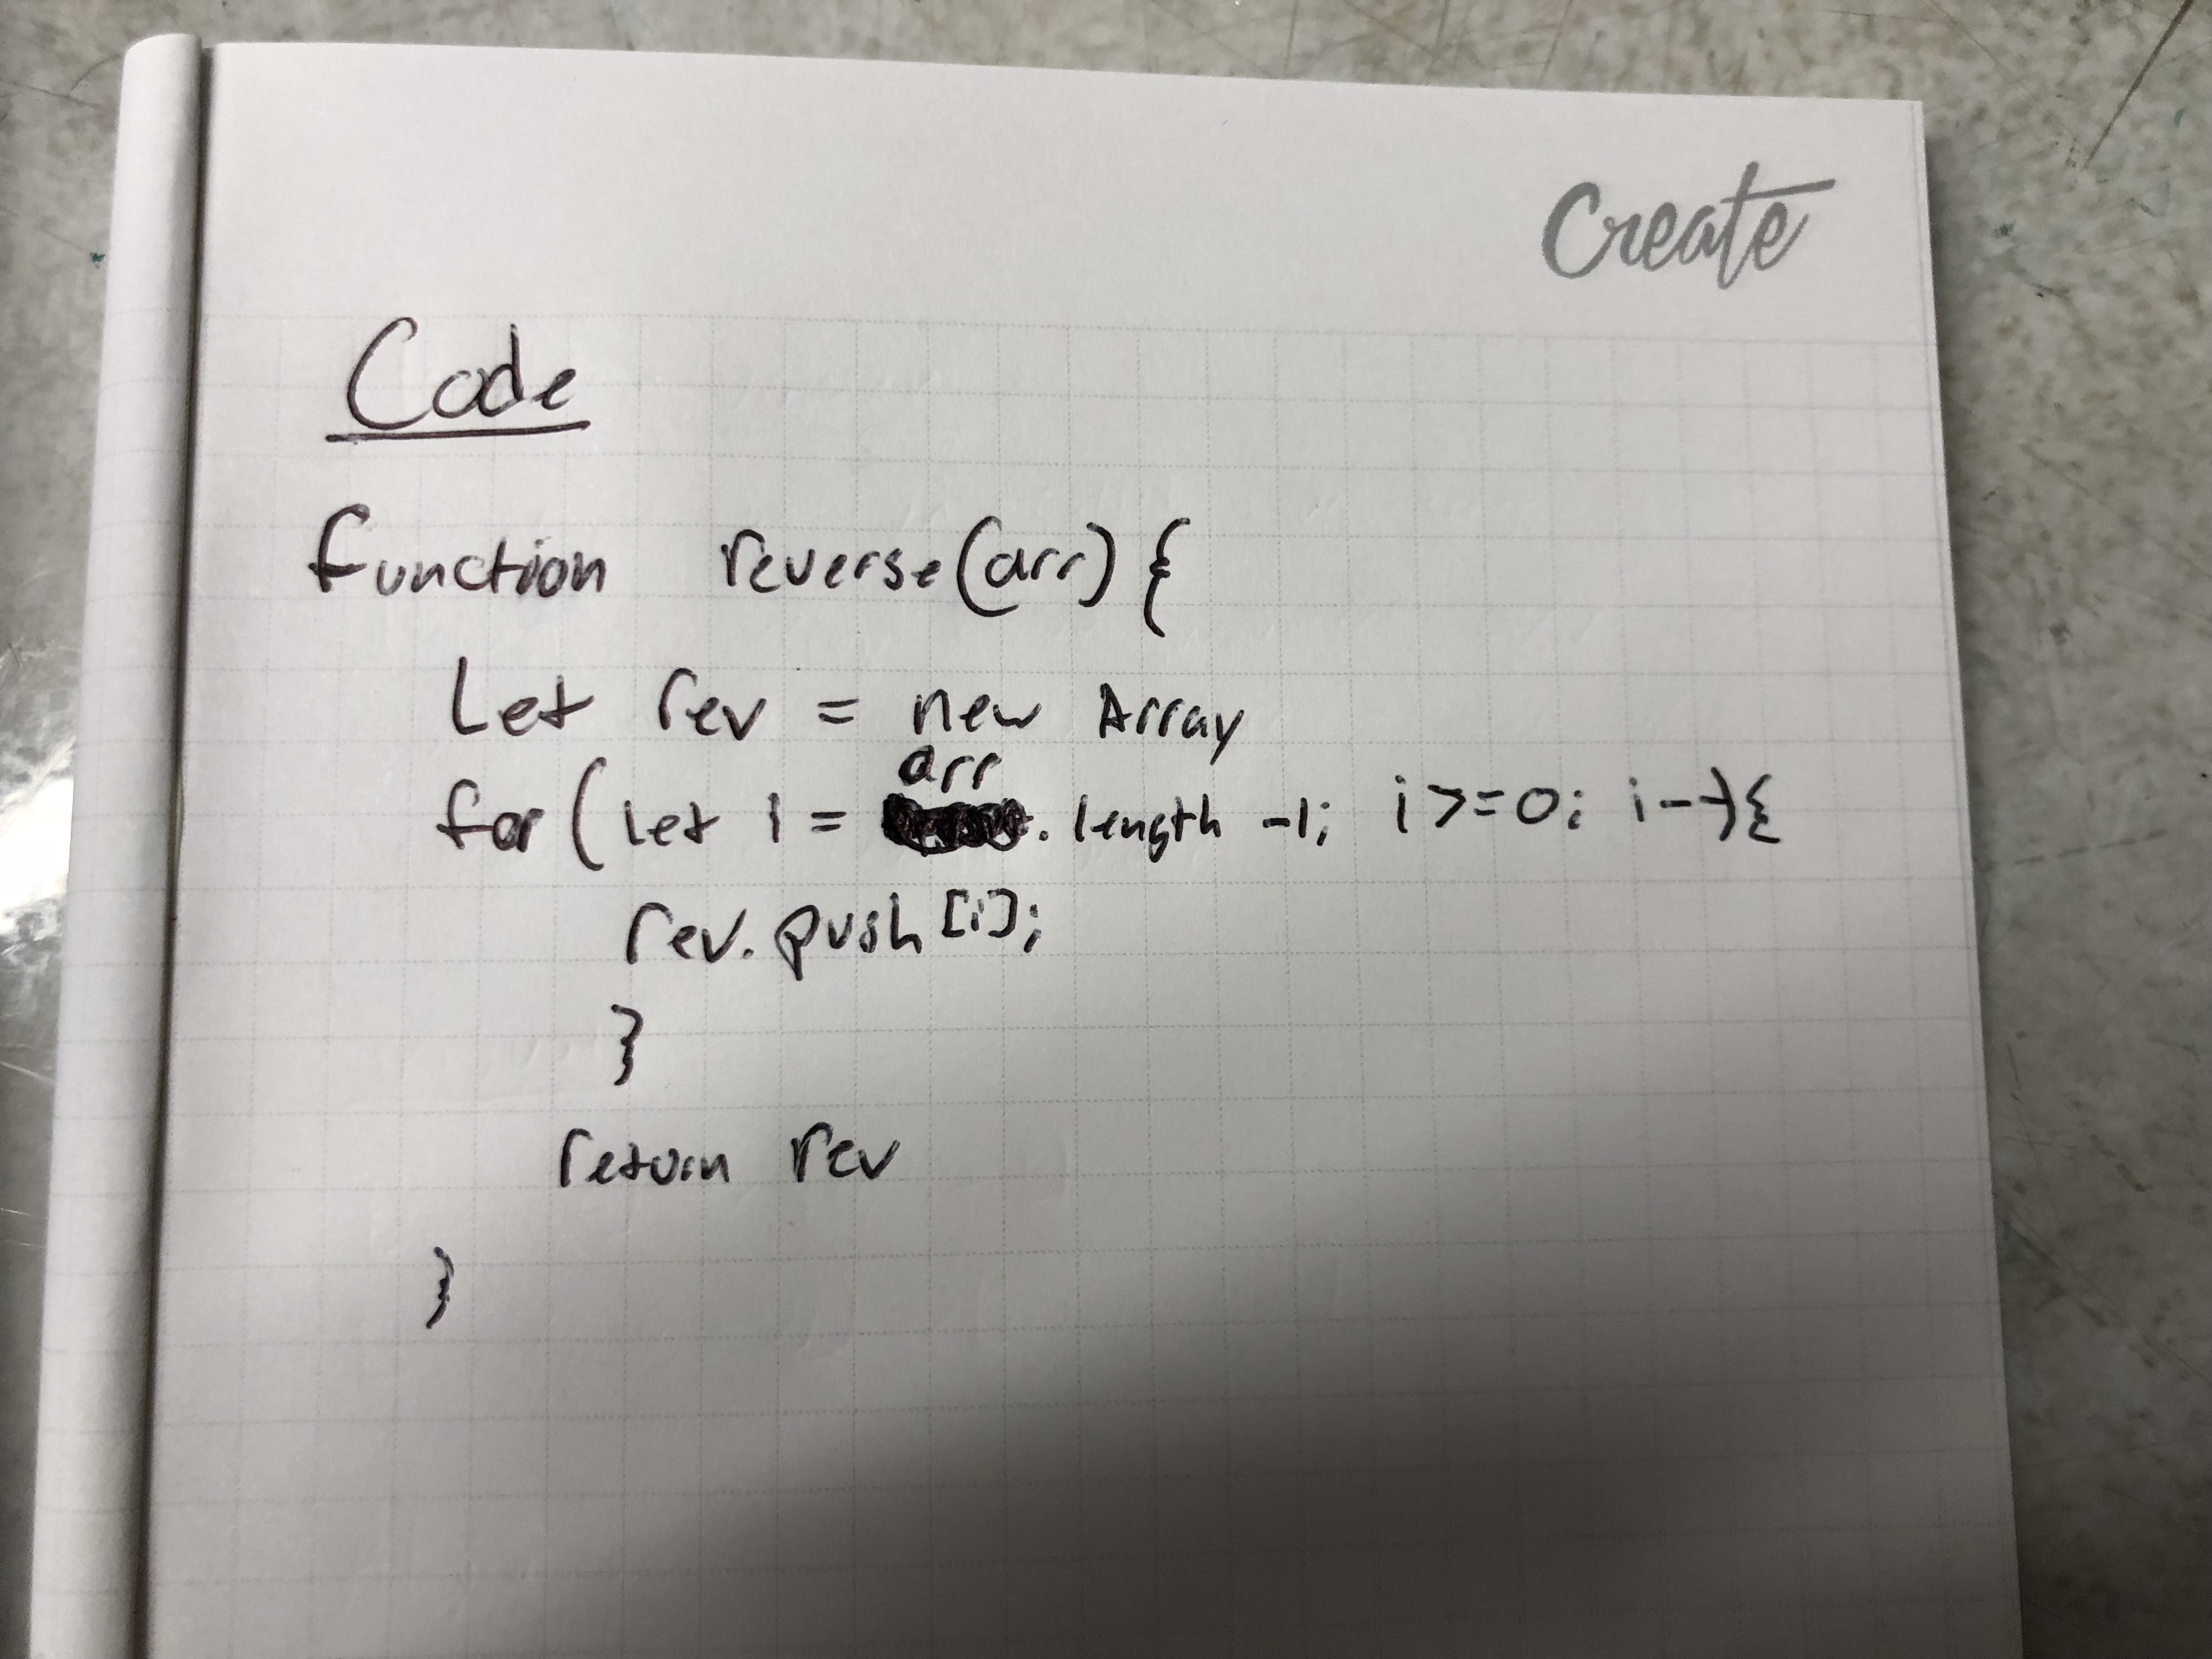 Create
Code
function reverse(arr){
Let rev = new Array
for(let i = arr.length -1; i>=0; i--){
rev.push[i];
}
return rev
}